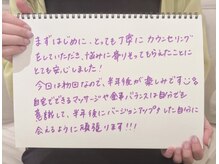 まずはじめに、とっても丁寧に カウンセリング
をしていただき、悩みに寄りそってもらえたことに
とても安心しました!
今日は初回なので、半年後が楽しみです☺
自宅でできるマッサージや食事バランスは自分でも
意識して、半年後にバージョンアップした自分に
会えるように頑張ります!!!